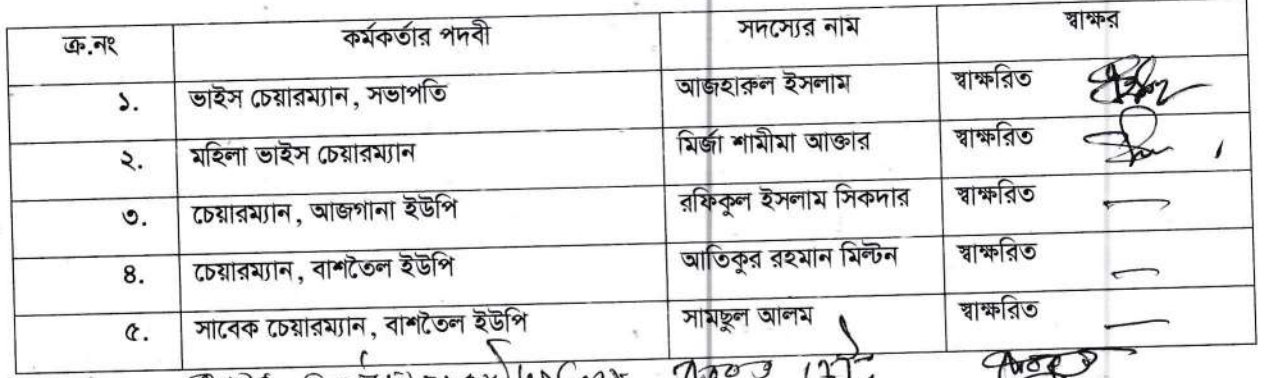 ক্র.নং কর্মকর্তার পদবী সদস্যের নাম স্বাক্ষর
১. ভাইস চেয়ারম্যান, সভাপতি আজহারুল ইসলাম স্বাক্ষরিত
২. মহিলা ভাইস চেয়ারম্যান মির্জা শামীমা আক্তার স্বাক্ষরিত
৩. চেয়ারম্যান, আজগানা ইউপি রফিকুল ইসলাম সিকদার স্বাক্ষরিত
৪. চেয়ারম্যান, বাশতৈল ইউপি আতিকুর রহমান মিল্টন স্বাক্ষরিত
৫. সাবেক চেয়ারম্যান, বাশতৈল ইউপি সামছুল আলম স্বাক্ষরিত